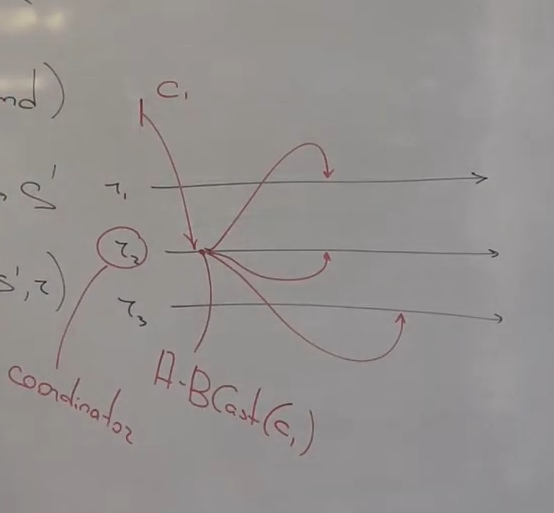 nd)
C₁
, S'
r₁
r₂
S', r)
r₃
coordinator
A-BCast(c₁)